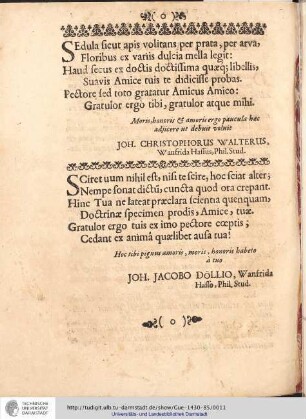 Sedula sicut apis volitans per prata, per arva,
Floribus ex variis dulcia mella legit:
Haud secus ex doctis doctissima quæq; libellis,
Suavis Amice tuis te didicisse probas.
Pectore sed toto gratatur Amicus Amico:
Gratulor ergo tibi, gratulor atque mihi.
Moris, honoris & amoris ergo paucula hæc
adjicere ut debuit voluit
JOH. CHRISTOPHORUS WALTERUS,
Wanfrida Hassus, Phil. Stud.
SCiret uum nihil est, nisi te scire, hoc sciat alter;
Nempe sonat dictũ, cuncta quod ora crepant.
Hinc Tua ne lateat præclara scientia quenquam,
Doctrinæ specimen prodis, Amice, tuæ.
Gratulor ergo tuis ex imo pectore cœptis;
Cedant ex animâ quælibet ausa tua!
Hoc tibi pignus amoris, moris, honoris habeto
à tuo
JOH. JACOBO DÖLLIO, Wanfrida
Hasso, Phil. Stud.
TECHNISCHE
UNIVERSITÄT
DARMSTADT
http://tudigit.ulb.tu-darmstadt.de/show/Gue-1430-85/0011
Universitäts- und Landesbibliothek Darmstadt